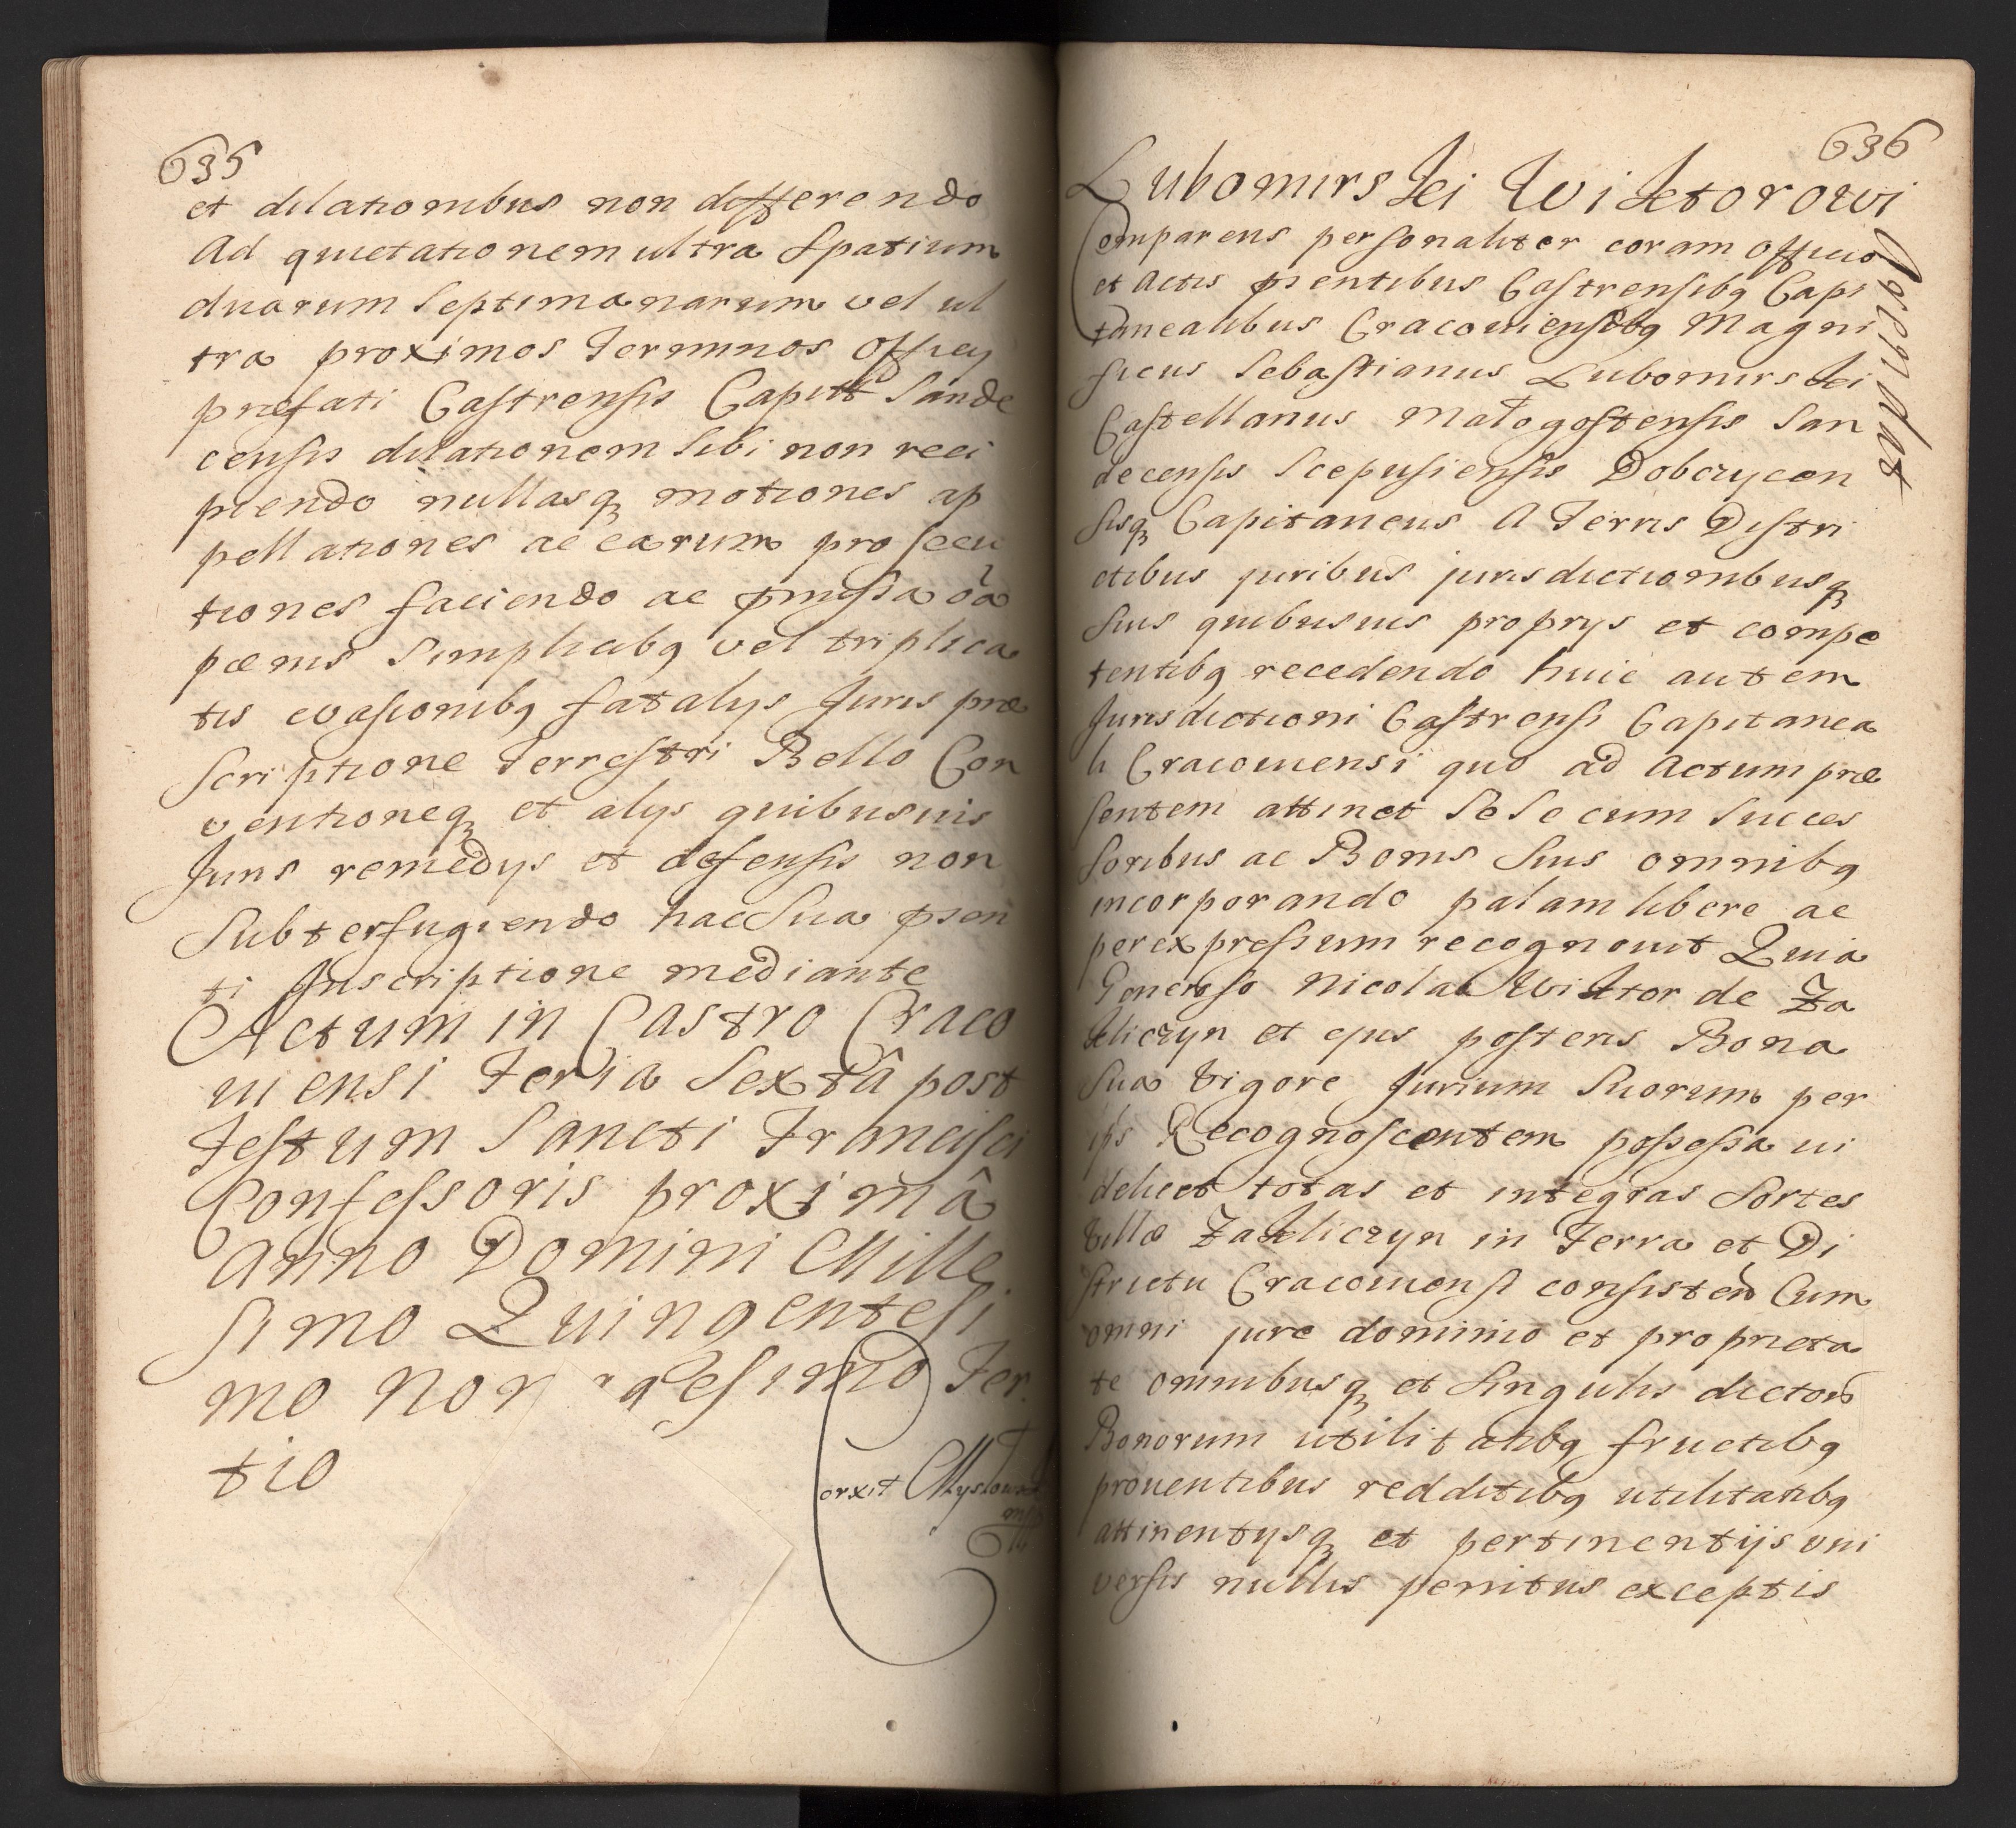 635
et dilationibus non differendo
Ad quietationem ultra Spatium
duarum Septimanarum vel ul
tra proximos Terminos Officy
præfati Castrensis Capitt Sande
censis dilationem Sibi non reci
piendo nullasq motiones ap
pellationes ac earum prosecu
tiones faciendo ac pmissa oâ
pœnis Simplicibq vel triplica
tis evasionibq fatalys Juris præ
Scriptione Terrestri Bello Con
ventioneq et alys quibusuis
Juris remedys et defensis non
Subterfugiendo hac Sua psen
ti Inscriptione mediante
Actum in Castro Craco
uiensi Feria Sextâ post
Festum Sancti Francisci
Confessoris proximâ
Anno Domini Mille
simo Quingentesi
mo non gesimo Ter
tio
orxit
636
Lubomirskei Wiktorowi
Comparens personaliter coram Officio
et Actis psentibus Castrensibq Capi
taneatibus Cracouiensibq Magni
ficus Sebastianus Lubomirskei
Castellanus Małogostensis San
decensis Scepusiensis Dobczycen
sisq Capitaneus A Terris Distri
ctibus juribus jurisdictionibusq
Suis quibusuis proprys et compe
tentibq recedendo huic autem
Jurisdictioni Castrensi Capitanea
li Cracouiensi quo ad Actum præ
sentem attinet Sese cum Succes
soribus ac Bonis Suis omnibq
incorporando palam libere ac
per expressum recognouit Quia
Generoso Nicolao Wiktor de Za
kliczyn et ejus posteris Bona
Sua vigore Jurium Suorum per
ips Recognoscentem possessa ui
delicet totas et integras Sortes
Villæ Zakliczyn in Terra et Di
strictu Cracouiensi consisten Cum
omni jure dominio et proprieta
te omnibusq et Singulis dictorō
Bonorum utilitatibq fructibq
prouentibus redditibq utilitatibq
attinentysq et pertinentijs vni
versis nullis penitus exceptis